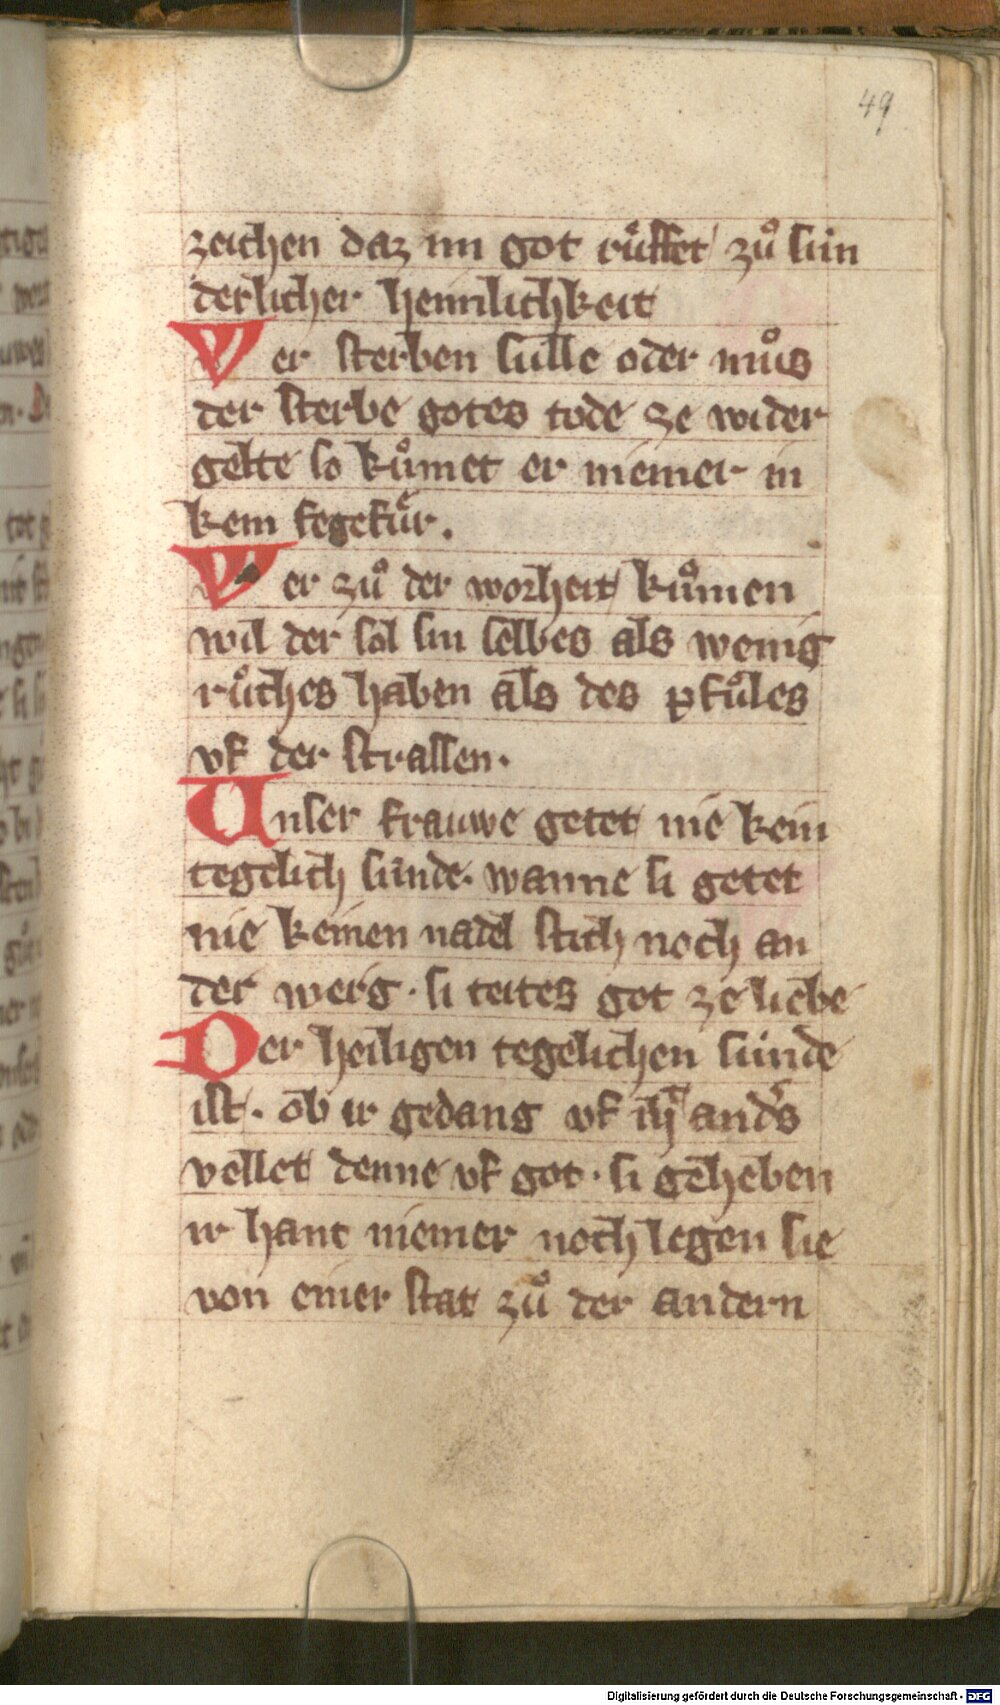 49
zeichen daz im got ruͤffet zuͦ sun
derlicher heimlichkeit
Wer sterben sulle oder muͦs
der sterbe gotes tode ze wider
gelte so kuͦmet er niemer in
kein fegefuͤr.
Wer zuͦ der worheit kuͦmen
wil der sol sin selbes als wenig
ruͦches haben als des pfuͦles
vf der strassen.
Unser frauwe getet nie kein
tegelich sunde. wanne si getet
nie keinen nadel stich noch an
der werg. si tetes got ze liebe
Der heiligen tegelichen sunde
ist. ob ir gedang vf iht anders
vellet denne vf got. si geheben
ir hant niemer noch legen sie
von einer stat zuͦ der andern
Digitalisierung gefördert durch die Deutsche Forschungsgemeinschaft - DFG